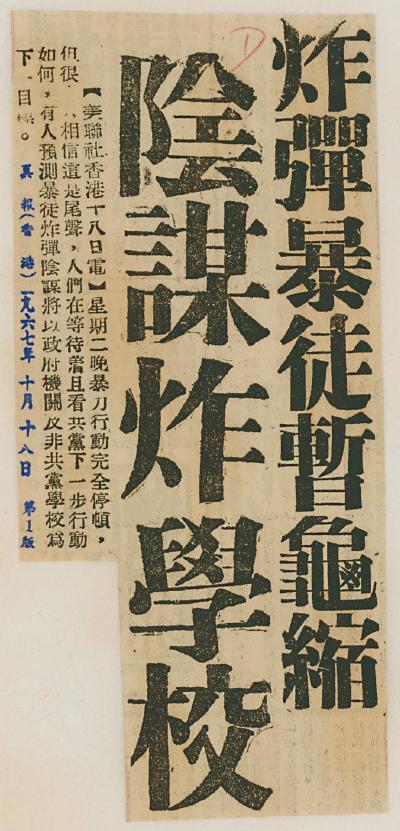 D
炸彈暴徒暫龜縮
陰謀炸學校
【美聯社香港十八日電】星期二晚暴力行動完全停頓，
但很 人相信這是尾聲，人們在等待着且看共黨下一步行動
如何，有人預測暴徒炸彈陰謀將以政府機關及非共黨學校爲
下 目 。
真報（香港）一九六七年十月十八日 第1版